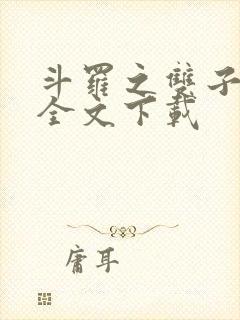 斗羅之雙子
全文下載
庸耳